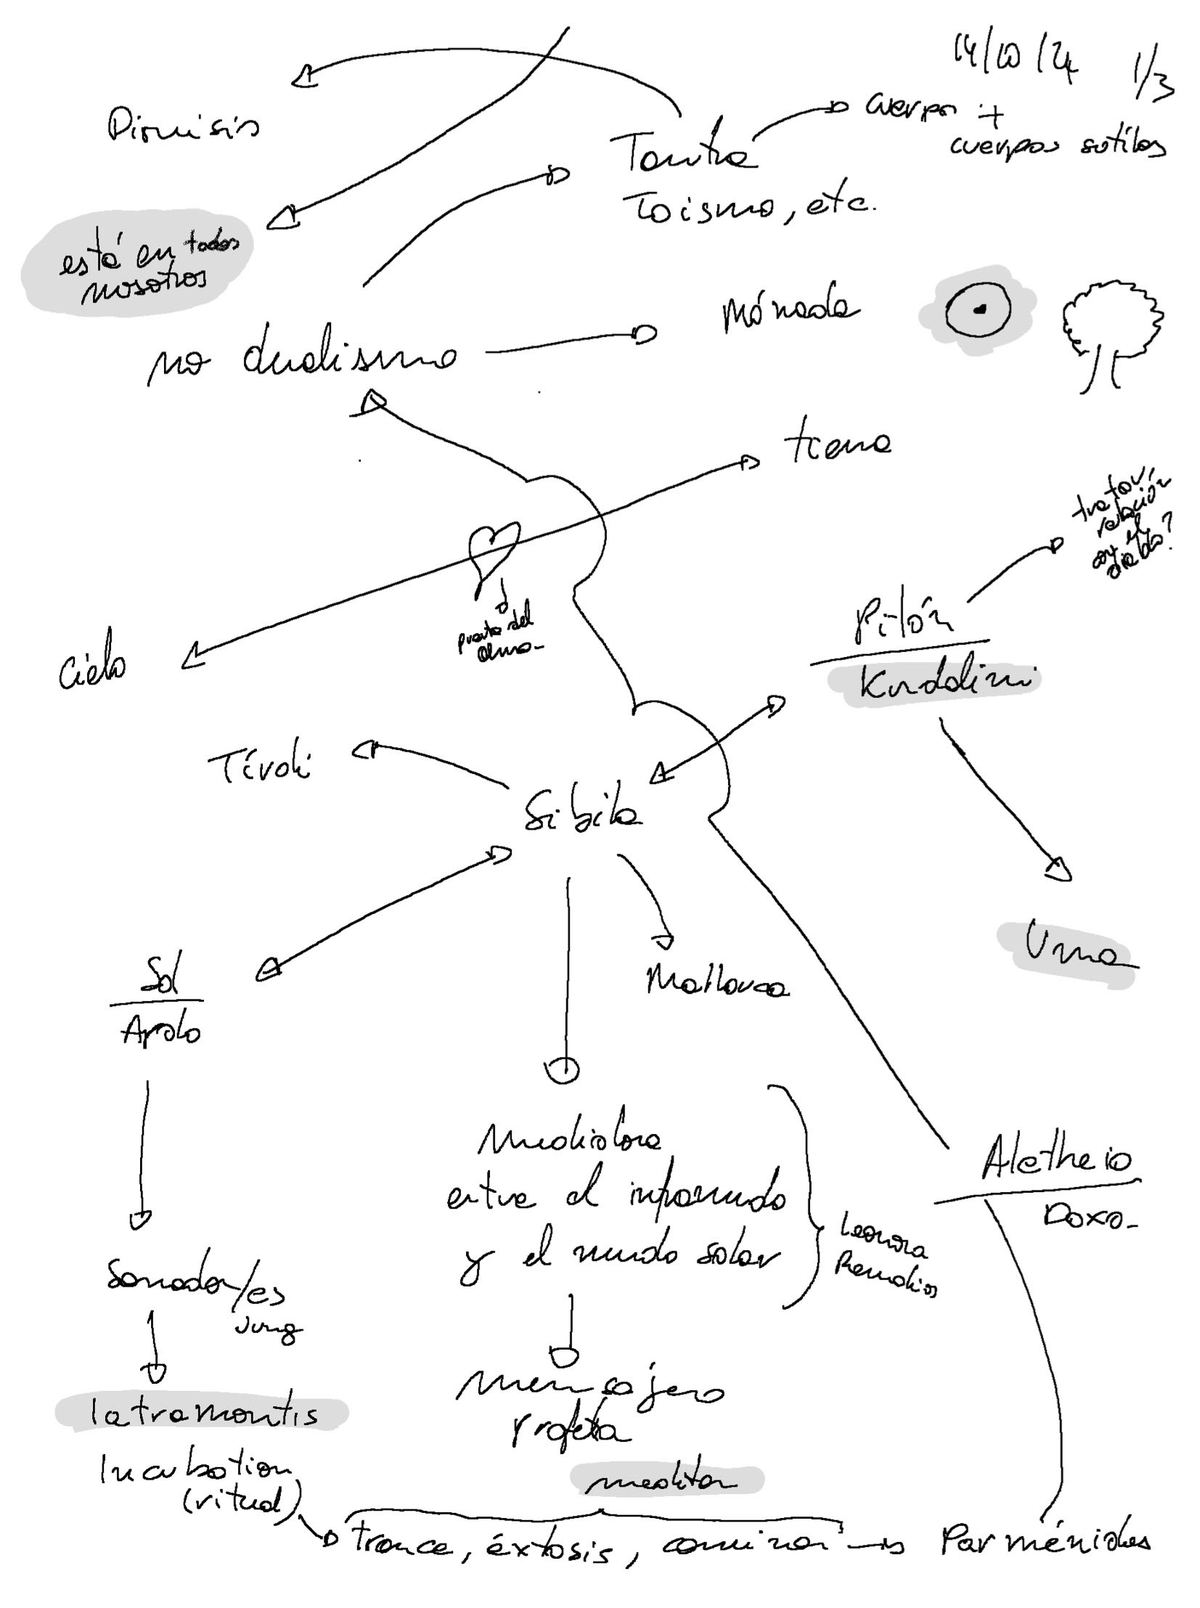 14/10/24 1/3
Dionisio
Tantra
Toismo, etc.
cuerpo +
cuerpos sutiles
está en todos
nosotros
no dualismo
Mónada
tierra
tratar,
relación
con el
diablo?
Cielo
puerta del
alma
Pitón
Kundalini
Tívoli
Sibila
Sol
Apolo
Mallorca
Uma
Mediadora
entre el inframundo
y el mundo solar
Leonora
Remedios
Aletheia
Doxa
Sanador/es
Jung
mensajero
profeta
Iatromantis
Incubation
(ritual)
meditar
trance, éxtasis, caminar
Parménides